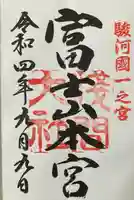 駿河國一之宮
富士山本宮
浅間大社
令和四年九月九日